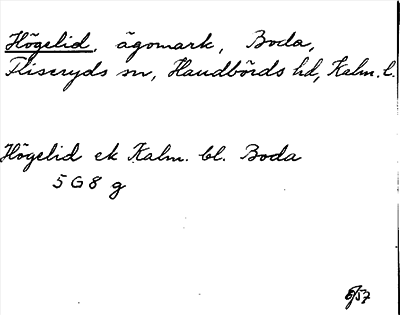 Högelid, ägomark, Boda,
Fliseryds sn, Handbörds hd, Kalm. l.
Högelid ek Kalm. bl. Boda
5 G 8 g